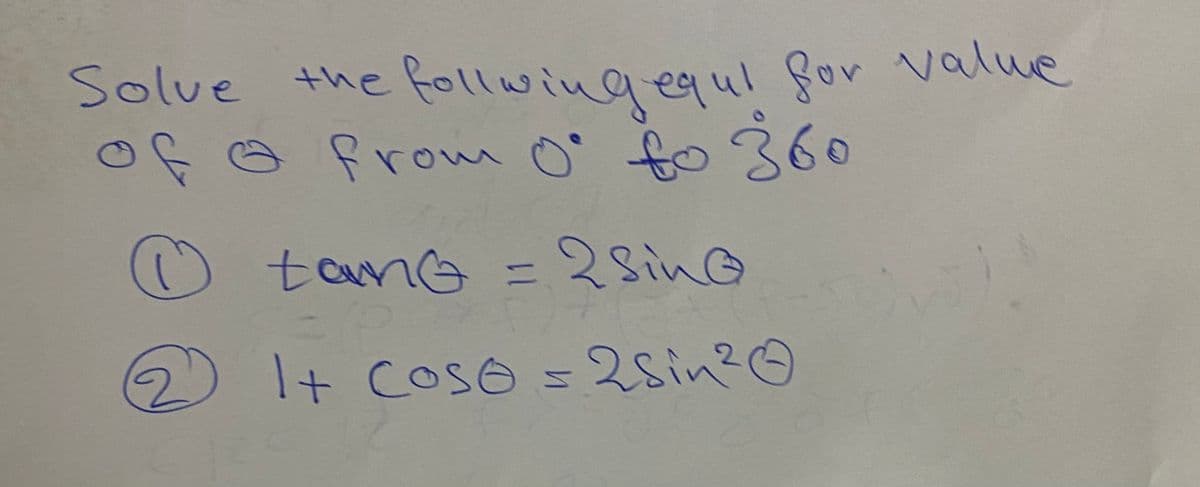 Solve the follwing equl for value
of θ from 0° to 360°
① tanθ = 2sinθ
② 1+ cosθ = 2sin²θ